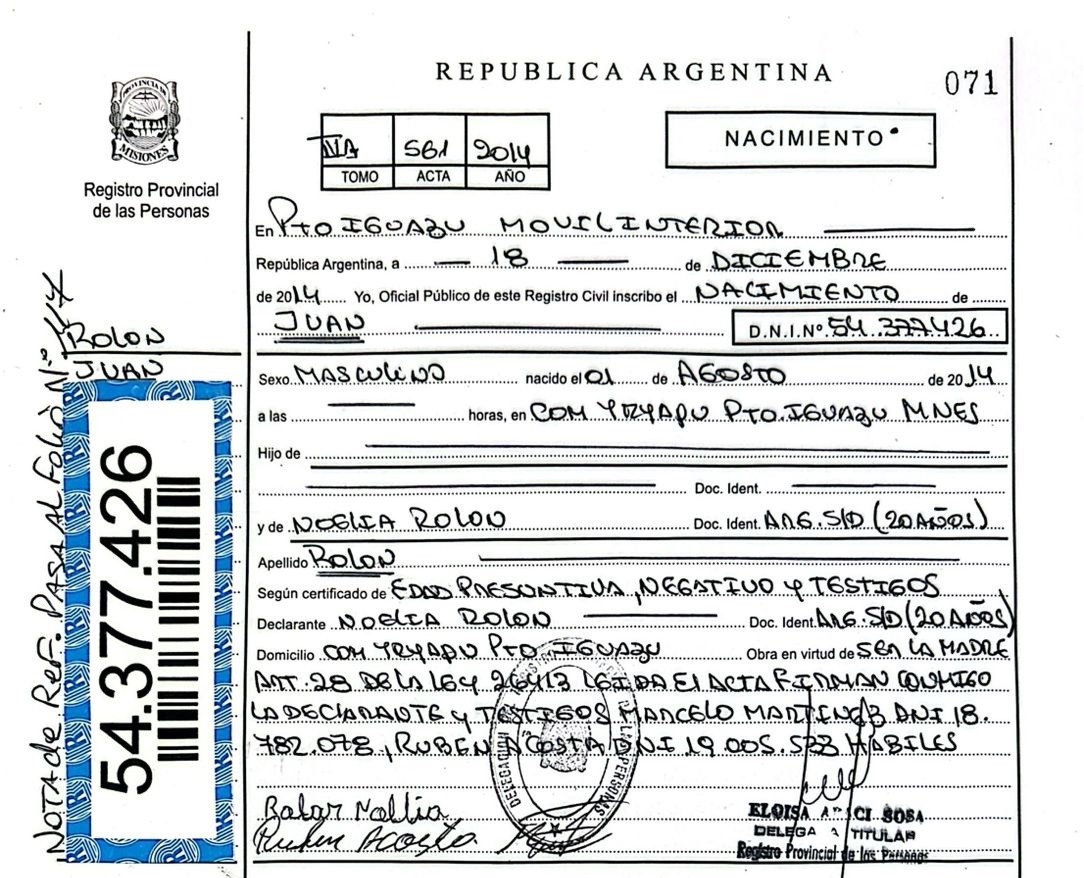 REPUBLICA ARGENTINA
071
PROVINCIA DE
MISIONES
Registro Provincial
de las Personas
561 2014
TOMO ACTA AÑO
NACIMIENTO
En Pto IGUAZU MOVIL INTERIOR
República Argentina, a 18 de DICIEMBRE
de 2014 Yo, Oficial Público de este Registro Civil inscribo el NACIMIENTO de
JUAN D.N.I.Nº 54.377.426
ROLON
JUAN
Sexo MASCULINO nacido el 01 de AGOSTO de 2014
a las horas, en COM YRYAPU Pto. IGUAZU MNES
Hijo de
Doc. Ident.
y de NOELIA ROLON Doc. Ident. ARG. S/D (20 AÑOS)
Apellido ROLON
Según certificado de EDAD PRESUNTIVA, NEGATIVO y TESTIGOS
Declarante NOELIA ROLON Doc. Ident. ARG. S/D (20 AÑOS)
Domicilio COM YRYAPU Pto. IGUAZU Obra en virtud de SER LA MADRE
ART. 28 DE LA LEY 26413 LEIDA El ACTA FIRMAN CONMIGO
LA DECLARANTE y TESTIGOS MARCELO MARTINEZ DNI 18.
782.078, RUBEN ACOSTA DNI 19.005.523 HABILES
Ruben Acosta
DELEGACION
PERSONAS
ELOISA SOSA
DELEGADA TITULAR
Registro Provincial de las Personas
NOTA de Ref. PASA AL Folio Nº
54.377.426